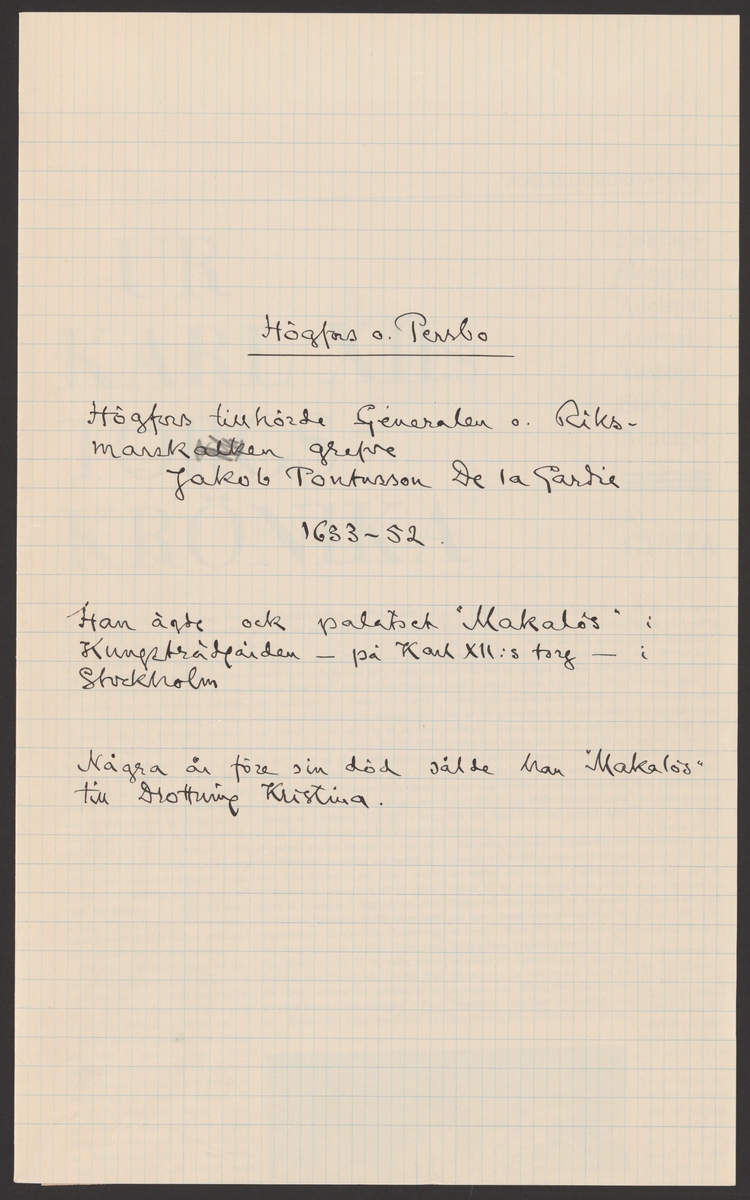 Högfors o. Persbo
Högfors tillhörde Generalen o. Riks-
marsken grefve
Jakob Pontusson De la Gardie
1633-52.
Han ägde ock palatset "Makalös" i
Kungsträdgården — på Karl XII:s torg — i
Stockholm
Några år före sin död sålde han "Makalös"
till Drottning Kristina.